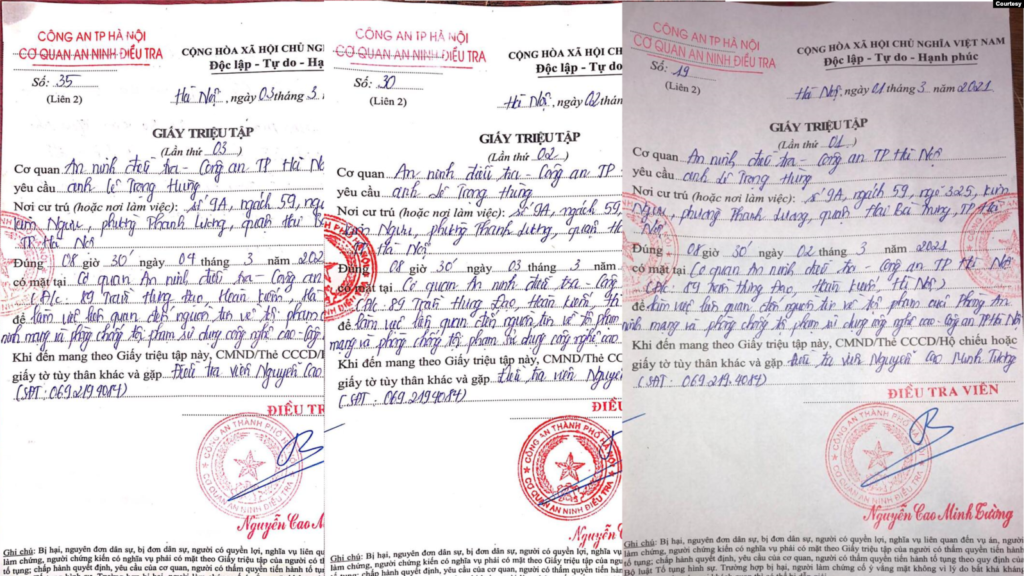 Courtesy
CÔNG AN TP HÀ NỘI
CƠ QUAN AN NINH ĐIỀU TRA
Số: 35
(Liên 2)
CỘNG HÒA XÃ HỘI CHỦ NGHĨ
Độc lập - Tự do - Hạn
Hà Nội, ngày 03 tháng 3
GIẤY TRIỆU TẬP
(Lần thứ 03)
Cơ quan An ninh điều tra - Công an TP Hà N
yêu cầu anh Lê Trọng Hùng
Nơi cư trú (hoặc nơi làm việc): số 9A, ngách 59, ngõ
Kim Ngưu, phường Thanh Lương, quận Hai B
TP. Hà Nội
Đúng 08 giờ 30' ngày 04 tháng 3 năm 202
có mặt tại Cơ quan An ninh điều tra - Công an
(Đ/c: 89 Trần Hưng Đạo, Hoàn Kiếm, Hà
để làm việc liên quan đến nguồn tin về tội phạm
ninh mạng và phòng chống tội phạm sử dụng công nghệ cao - Công
Khi đến mang theo Giấy triệu tập này, CMND/Thẻ CCCD/H
giấy tờ tùy thân khác và gặp Điều tra viên Nguyễn Cao
(SĐT: 069.219.4084)
ĐIỀU TR
CÔNG AN THÀNH PHỐ HÀ NỘI
CƠ QUAN AN NINH ĐIỀU TRA
Nguyễn Cao M
Ghi chú: Bị hại, nguyên đơn dân sự, bị đơn dân sự, người có quyền lợi, nghĩa vụ liên qua
làm chứng, người chứng kiến có nghĩa vụ phải có mặt theo Giấy triệu tập của người có th
tố tụng; chấp hành quyết định, yêu cầu của cơ quan, người có thẩm quyền tiến hành tố
CÔNG AN TP HÀ NỘI
CƠ QUAN AN NINH ĐIỀU TRA
Số: 30
(Liên 2)
CỘNG HÒA XÃ HỘI CHỦ
Độc lập - Tự do
Hà Nội, ngày 02 thán
GIẤY TRIỆU TẬP
(Lần thứ 02)
Cơ quan An ninh điều tra - Công an TP
yêu cầu anh Lê Trọng Hùng
Nơi cư trú (hoặc nơi làm việc): số 9A, ngách 59,
Kim Ngưu, phường Thanh Lương, quận H
TP. Hà Nội
Đúng 08 giờ 30' ngày 03 tháng 3 năm
có mặt tại Cơ quan An ninh điều tra - Công
(Đ/c: 89 Trần Hưng Đạo, Hoàn Kiếm, H
để làm việc liên quan đến nguồn tin về tội phạm
mạng và phòng chống tội phạm sử dụng công nghệ cao
Khi đến mang theo Giấy triệu tập này, CMND/Thẻ CCC
giấy tờ tùy thân khác và gặp Điều tra viên Nguyễn
(SĐT: 069.219.4084)
ĐIỀU
CÔNG AN THÀNH PHỐ HÀ NỘI
CƠ QUAN AN NINH ĐIỀU TRA
Nguyễn Cao
Ghi chú: Bị hại, nguyên đơn dân sự, bị đơn dân sự, người có quyền lợi, nghĩa vụ
làm chứng, người chứng kiến có nghĩa vụ phải có mặt theo Giấy triệu tập của ngư
tố tụng; chấp hành quyết định, yêu cầu của cơ quan, người có thẩm quyền tiến
CÔNG AN TP HÀ NỘI
CƠ QUAN AN NINH ĐIỀU TRA
Số: 19
(Liên 2)
CỘNG HÒA XÃ HỘI CHỦ NGHĨA VIỆT NAM
Độc lập - Tự do - Hạnh phúc
Hà Nội, ngày 01 tháng 3 năm 2021
GIẤY TRIỆU TẬP
(Lần thứ 01)
Cơ quan An ninh điều tra - Công an TP Hà Nội
yêu cầu anh Lê Trọng Hùng
Nơi cư trú (hoặc nơi làm việc): số 9A, ngách 59, ngõ 325, Kim
Ngưu, phường Thanh Lương, quận Hai Bà Trưng, TP Hà
Nội
Đúng 08 giờ 30' ngày 02 tháng 3 năm 2021
có mặt tại Cơ quan An ninh điều tra - Công an TP Hà Nội
(Đ/c: 89 Trần Hưng Đạo, Hoàn Kiếm, Hà Nội)
để làm việc liên quan đến nguồn tin về tội phạm của Phòng An
ninh mạng và phòng chống tội phạm sử dụng công nghệ cao - Công an TP Hà Nội
Khi đến mang theo Giấy triệu tập này, CMND/Thẻ CCCD/Hộ chiếu hoặc
giấy tờ tùy thân khác và gặp Điều tra viên Nguyễn Cao Minh Tường
(SĐT: 069.219.4084)
ĐIỀU TRA VIÊN
CÔNG AN THÀNH PHỐ HÀ NỘI
CƠ QUAN AN NINH ĐIỀU TRA
Nguyễn Cao Minh Tường
Ghi chú: Bị hại, nguyên đơn dân sự, bị đơn dân sự, người có quyền lợi, nghĩa vụ liên quan đến vụ án, người
làm chứng, người chứng kiến có nghĩa vụ phải có mặt theo Giấy triệu tập của người có thẩm quyền tiến hành
tố tụng; chấp hành quyết định, yêu cầu của cơ quan, người có thẩm quyền tiến hành tố tụng theo quy định của
Bộ luật Tố tụng hình sự. Trường hợp bị hại, người làm chứng cố ý vắng mặt không vì lý do bất khả kháng